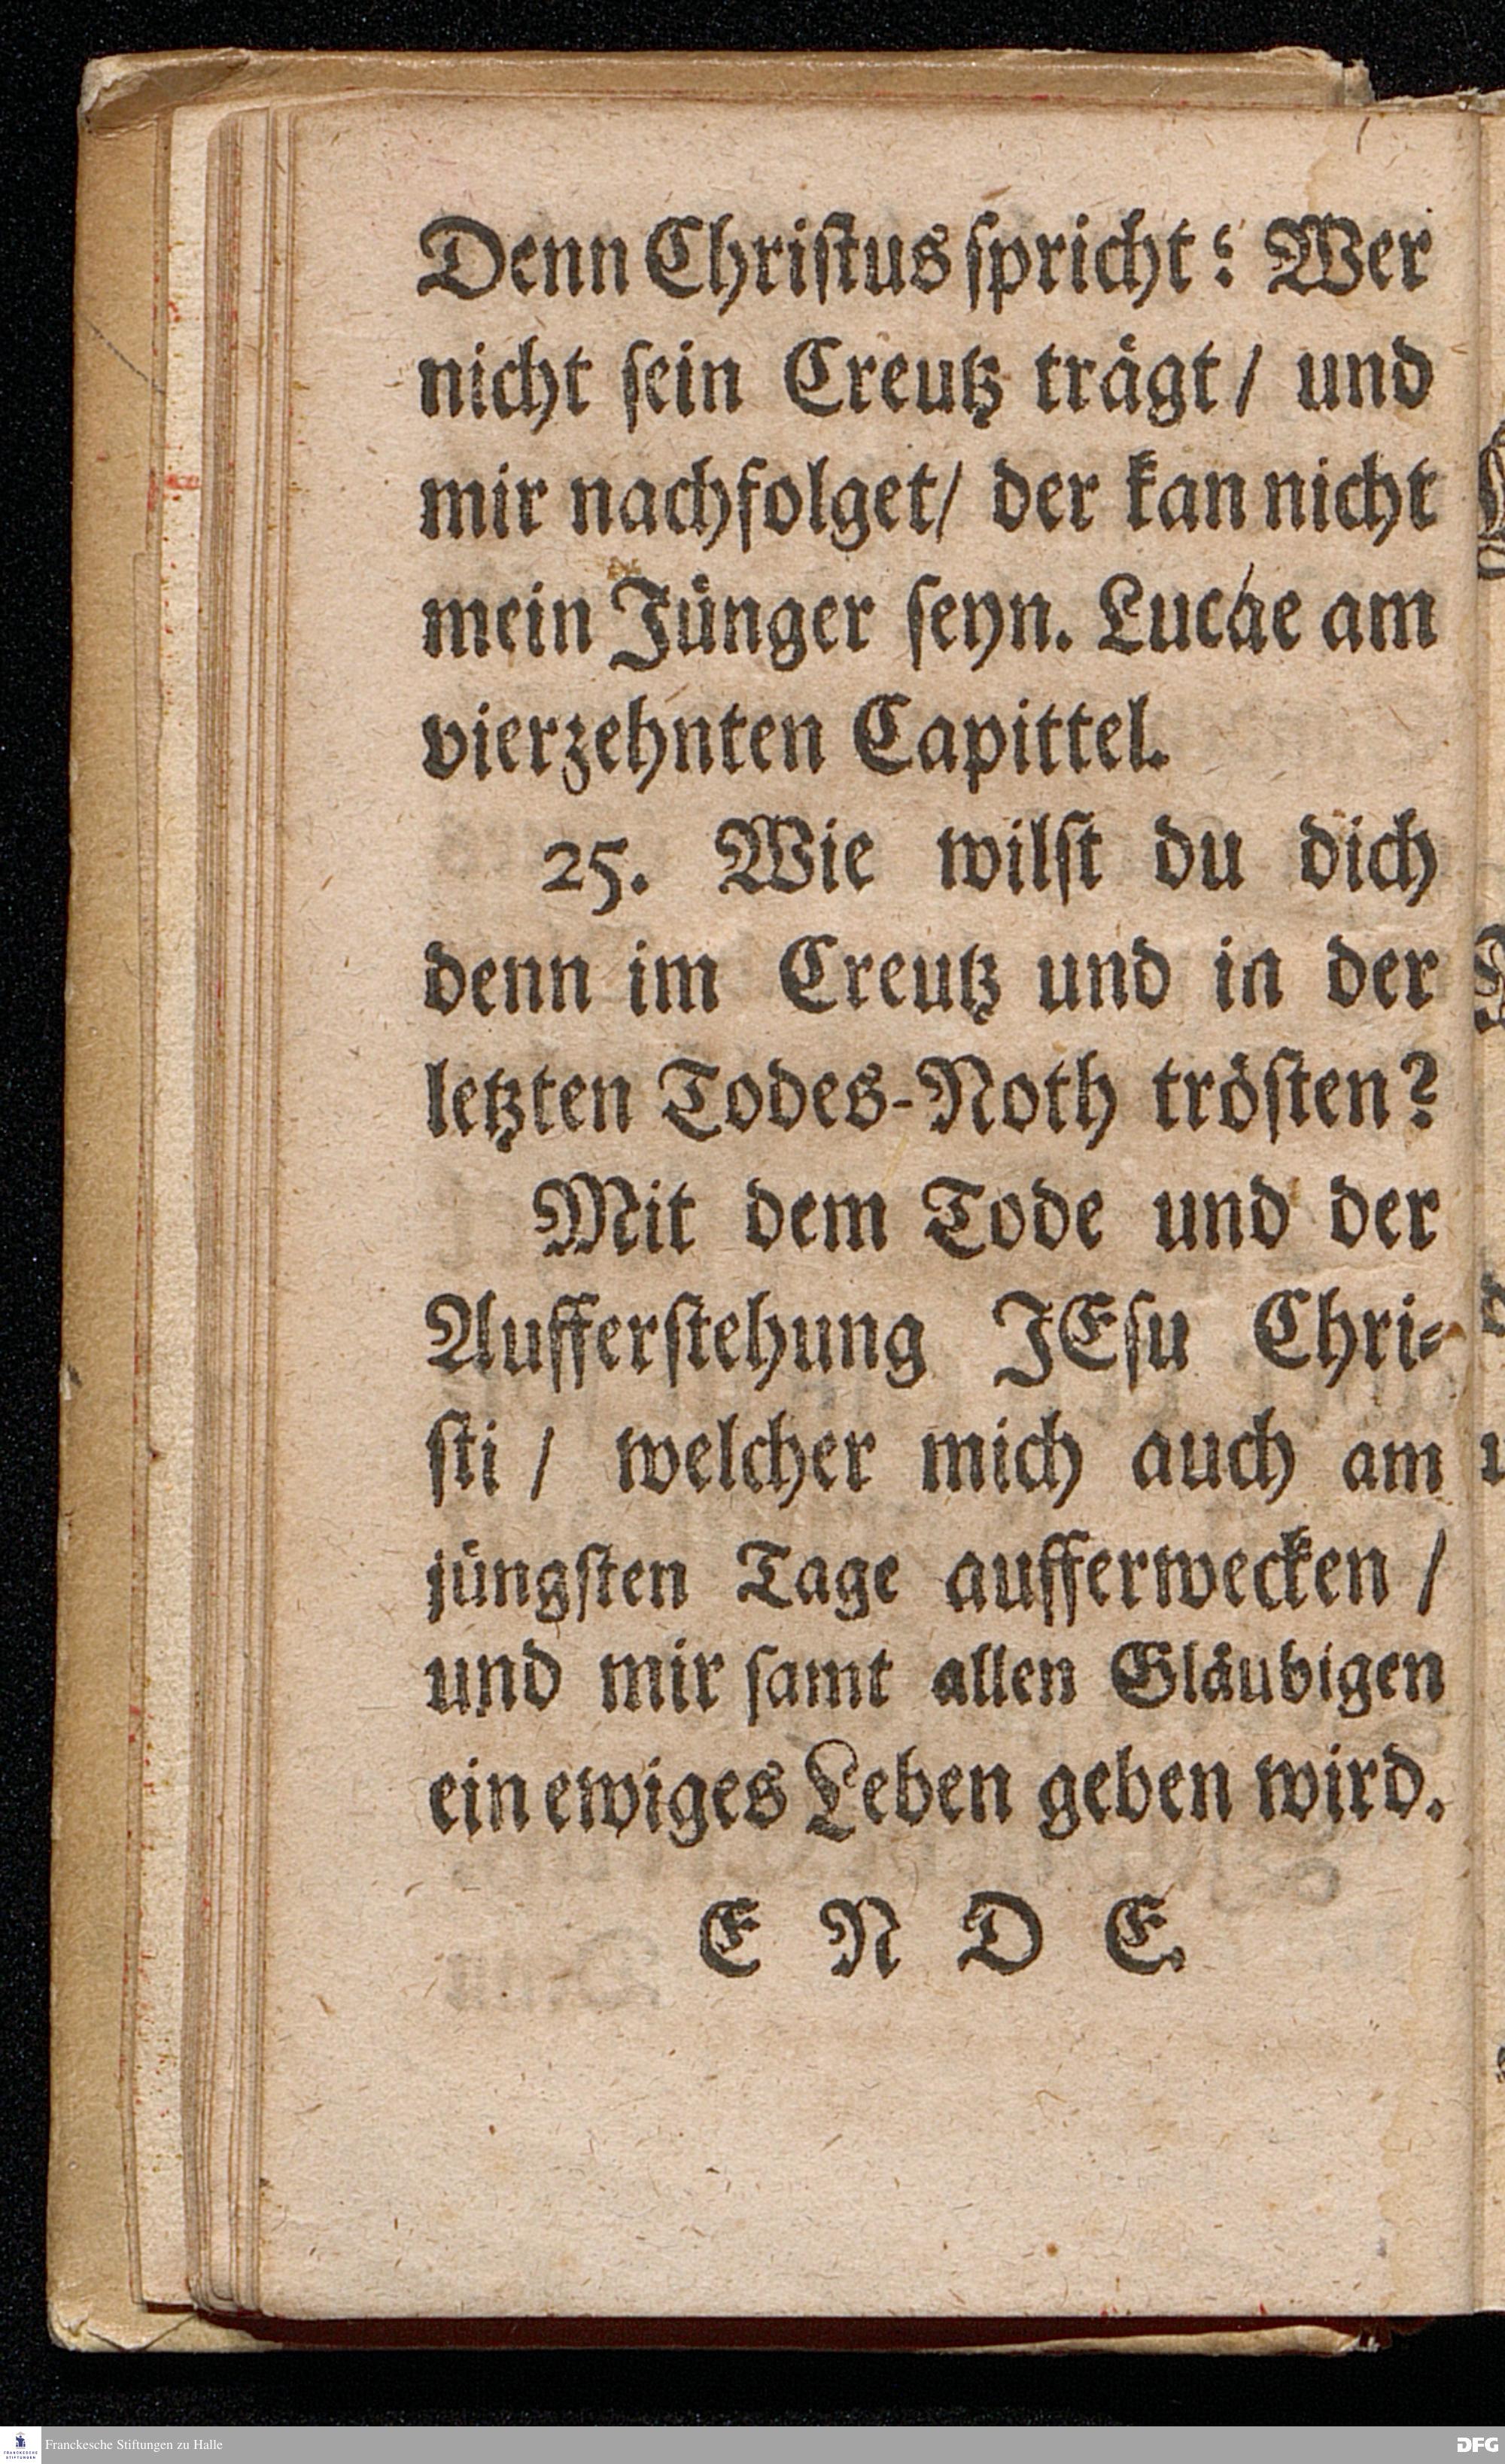 Denn Christus spricht: Wer
nicht sein Creutz trägt / und
mir nachfolget / der kan nicht
mein Jünger seyn. Lucae am
vierzehnten Capittel.
25. Wie wilst du dich
denn im Creutz und in der
letzten Todes-Noth trösten?
Mit dem Tode und der
Aufferstehung JEsu Chri-
sti / welcher mich auch am
jüngsten Tage aufferwecken /
und mir samt allen Gläubigen
ein ewiges Leben geben wird.
E N D E.
Franckesche Stiftungen zu Halle
DFG